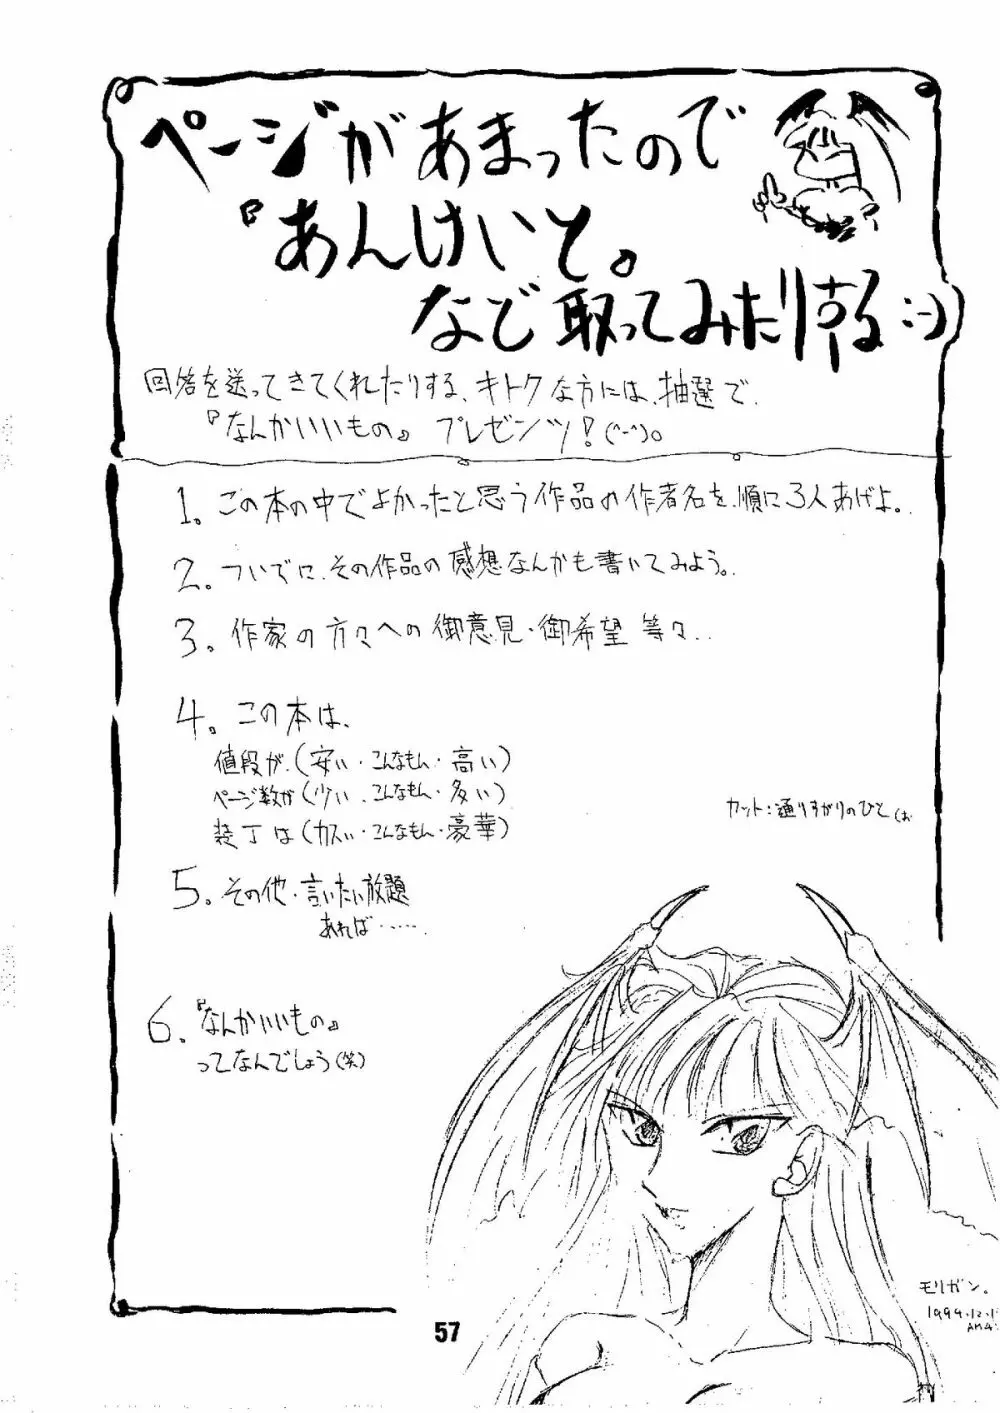 ページがあまったので
『あんけいと。
など取ってみたりする:-)
回答を送ってきてくれたりする、キトクな方には、抽選で、
『なんかいいもの』 プレゼンツ!(^-^)。
1。この本の中でよかったと思う作品の作者名を、順に3人あげよ。
2。ついでに、その作品の感想なんかも書いてみよう。
3。作家の方々への御意見・御希望等々..
4。この本は、
値段が、(安い・こんなもん・高い)
ページ数が(少い・こんなもん・多い)
装丁は(カスい・こんなもん・豪華)
カット:通りすがりのひと(お
5。その他・言いたい放題
あれば・・・・・
6。『なんかいいもの』
ってなんでしょう(笑)
モリガン。
57